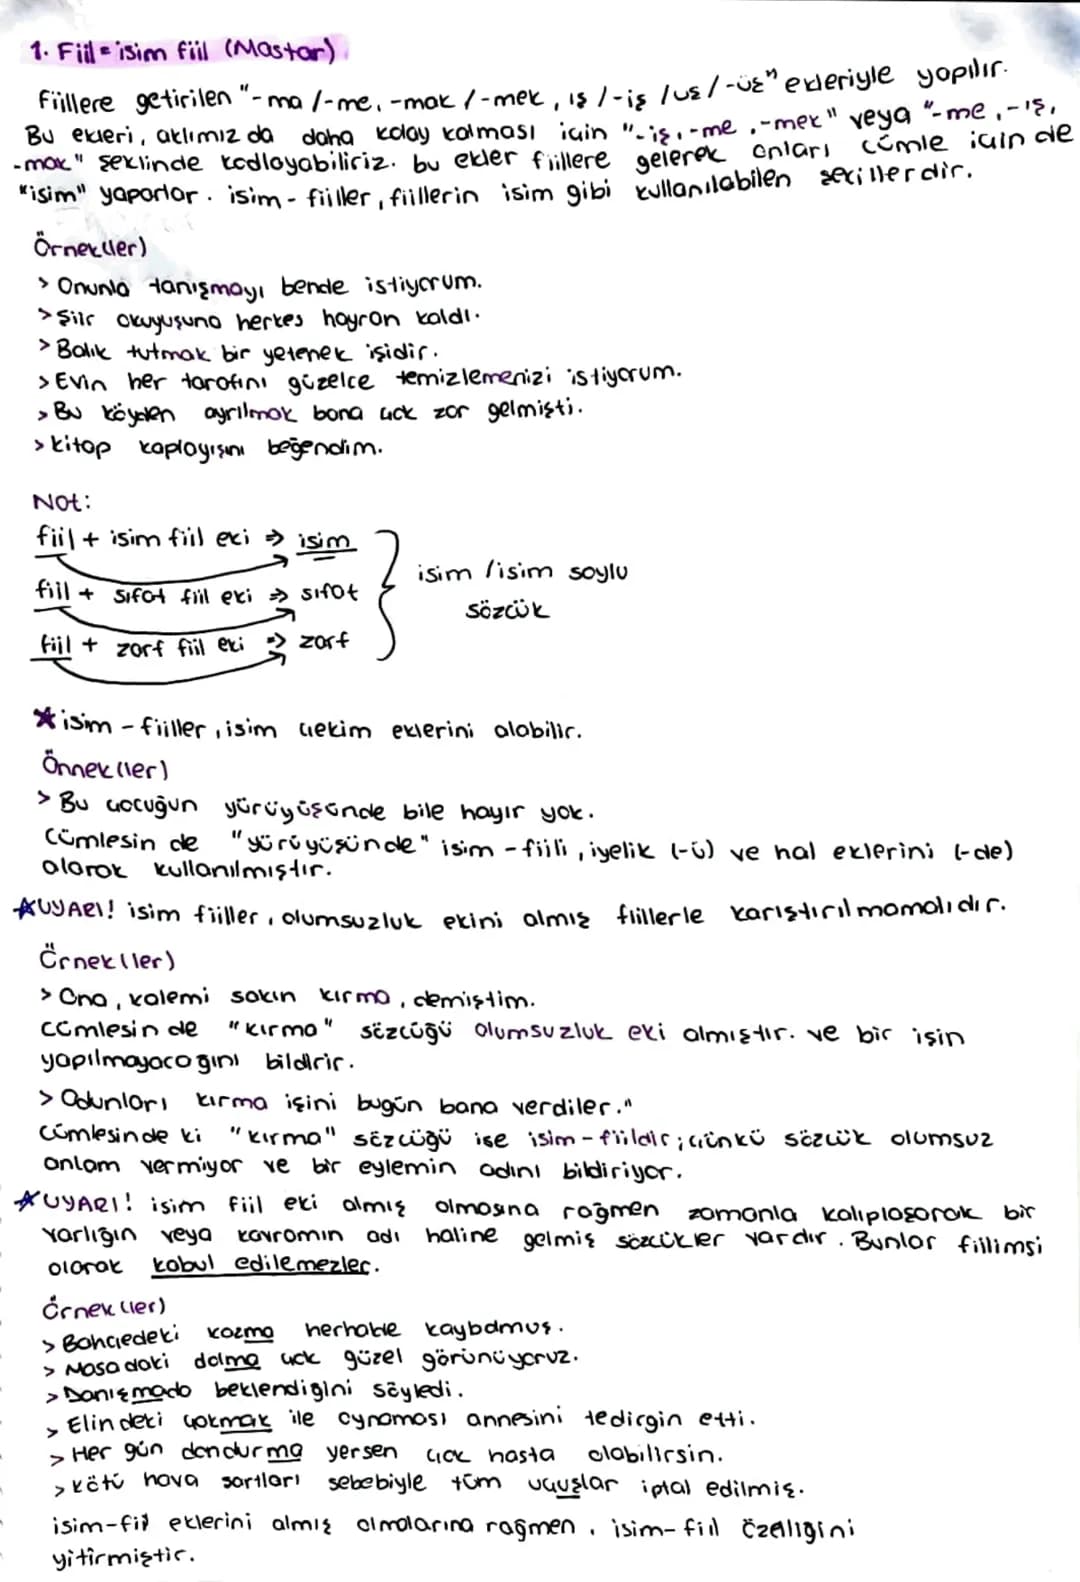 1. Fiil = isim fiil (Mastar)
Fiillere getirilen "-ma /-me, -mak /-mek, ış /-iş /uş /-üş" ekleriyle yapılır.
Bu ekleri, aklımız da daha kolay kalması için "-iş, -me, -mek" veya "-me, -ış,
-mak" şeklinde kodlayabiliriz. bu ekler fiillere gelerek onları cümle için de
"isim" yaparlar. isim - fiiller, fiillerin isim gibi kullanılabilen şekillerdir.
Örnek(ler)
> Onunla tanışmayı bende istiyorum.
> Şiir okuyuşuna herkes hayran kaldı.
> Balık tutmak bir yetenek işidir.
> Evin her tarafını güzelce temizlemenizi istiyorum.
> Bu köyden ayrılmak bana çok zor gelmişti.
> kitap kaplayışını beğendim.
Not:
fiil + isim fiil eki => isim
fiil + sıfat fiil eki => sıfat
isim /isim soylu
sözcük
fiil + zarf fiil eki => zarf
* isim - fiiller, isim çekim eklerini alabilir.
Önnek(ler)
> Bu çocuğun yürüyüşünde bile hayır yok.
Cümlesin de "yürüyüşünde" isim - fiili, iyelik (-ü) ve hal eklerini (-de)
alarak kullanılmıştır.
* UYARI! isim fiiller, olumsuzluk ekini almış fiillerle karıştırılmamalıdır.
Örnek(ler)
> Ona, kalemi sakın kırma, demiştim.
Cümlesin de "kırma" sözcüğü olumsuzluk eki almıştır. ve bir işin
yapılmayacağını bildirir.
> Odunları kırma işini bugün bana verdiler."
Cümlesinde ki "kırma" sözcüğü ise isim - fiildir; çünkü sözcük olumsuz
anlam vermiyor ve bir eylemin adını bildiriyor.
* UYARI! isim fiil eki almış olmasına rağmen zamanla kalıplaşarak bir
varlığın veya kavramın adı haline gelmiş sözcükler vardır. Bunlar fiilimsi
olarak kabul edilemezler.
Örnek(ler)
> Bahçedeki kazma herhalde kaybolmuş.
> Masadaki dolma çok güzel görünüyoruz.
> Danışmada beklendiğini söyledi.
> Elindeki çakmak ile oynaması annesini tedirgin etti.
> Her gün dondurma yersen çok hasta olabilirsin.
> kötü hava şartları sebebiyle tüm uçuşlar iptal edilmiş.
isim-fiil eklerini almış olmalarına rağmen, isim-fiil özelliğini
yitirmiştir.